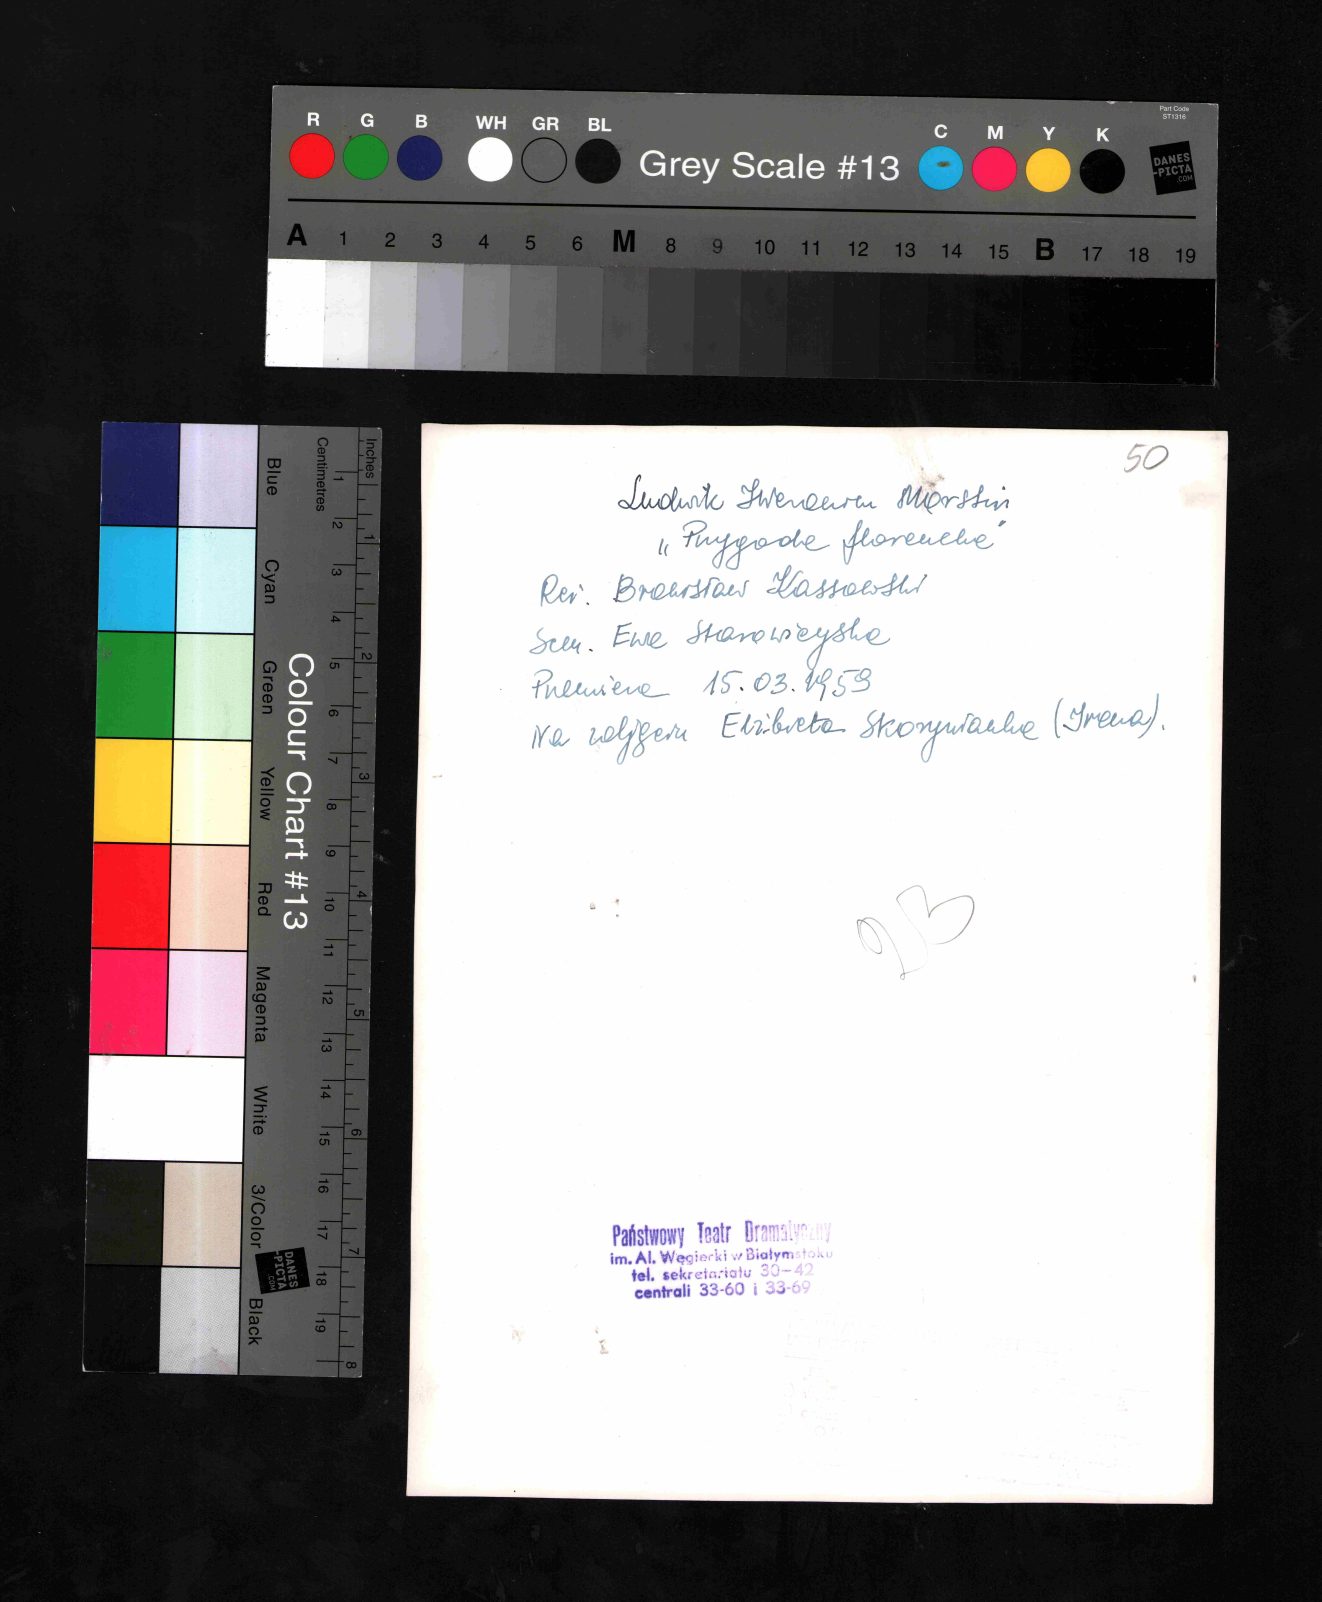 Part Code
ST1316
R G B WH GR BL Grey Scale #13 C M Y K
DANES
-PICTA
.COM
A 1 2 3 4 5 6 M 8 9 10 11 12 13 14 15 B 17 18 19
Colour Chart #13
Blue
Cyan
Green
Yellow
Red
Magenta
White
3/Color
Black
Centimetres
1 2 3 4 5 6 7 8 9 10 11 12 13 14 15 16 17 18 19
Inches
1 2 3 4 5 6 7 8
DANES
-PICTA
.COM
50
Ludwik Hieronim Morstin
„Przygoda florencka"
Reż. Bronisław Kassowski
Scen. Ewa Starowieyska
Premiera 15.03.1959
Na zdjęciu Elżbieta (Irena).
Państwowy Teatr Dramatyczny
im. Al. Węgierki w Białymstoku
tel. sekretariatu 30-42
centrali 33-60 i 33-69